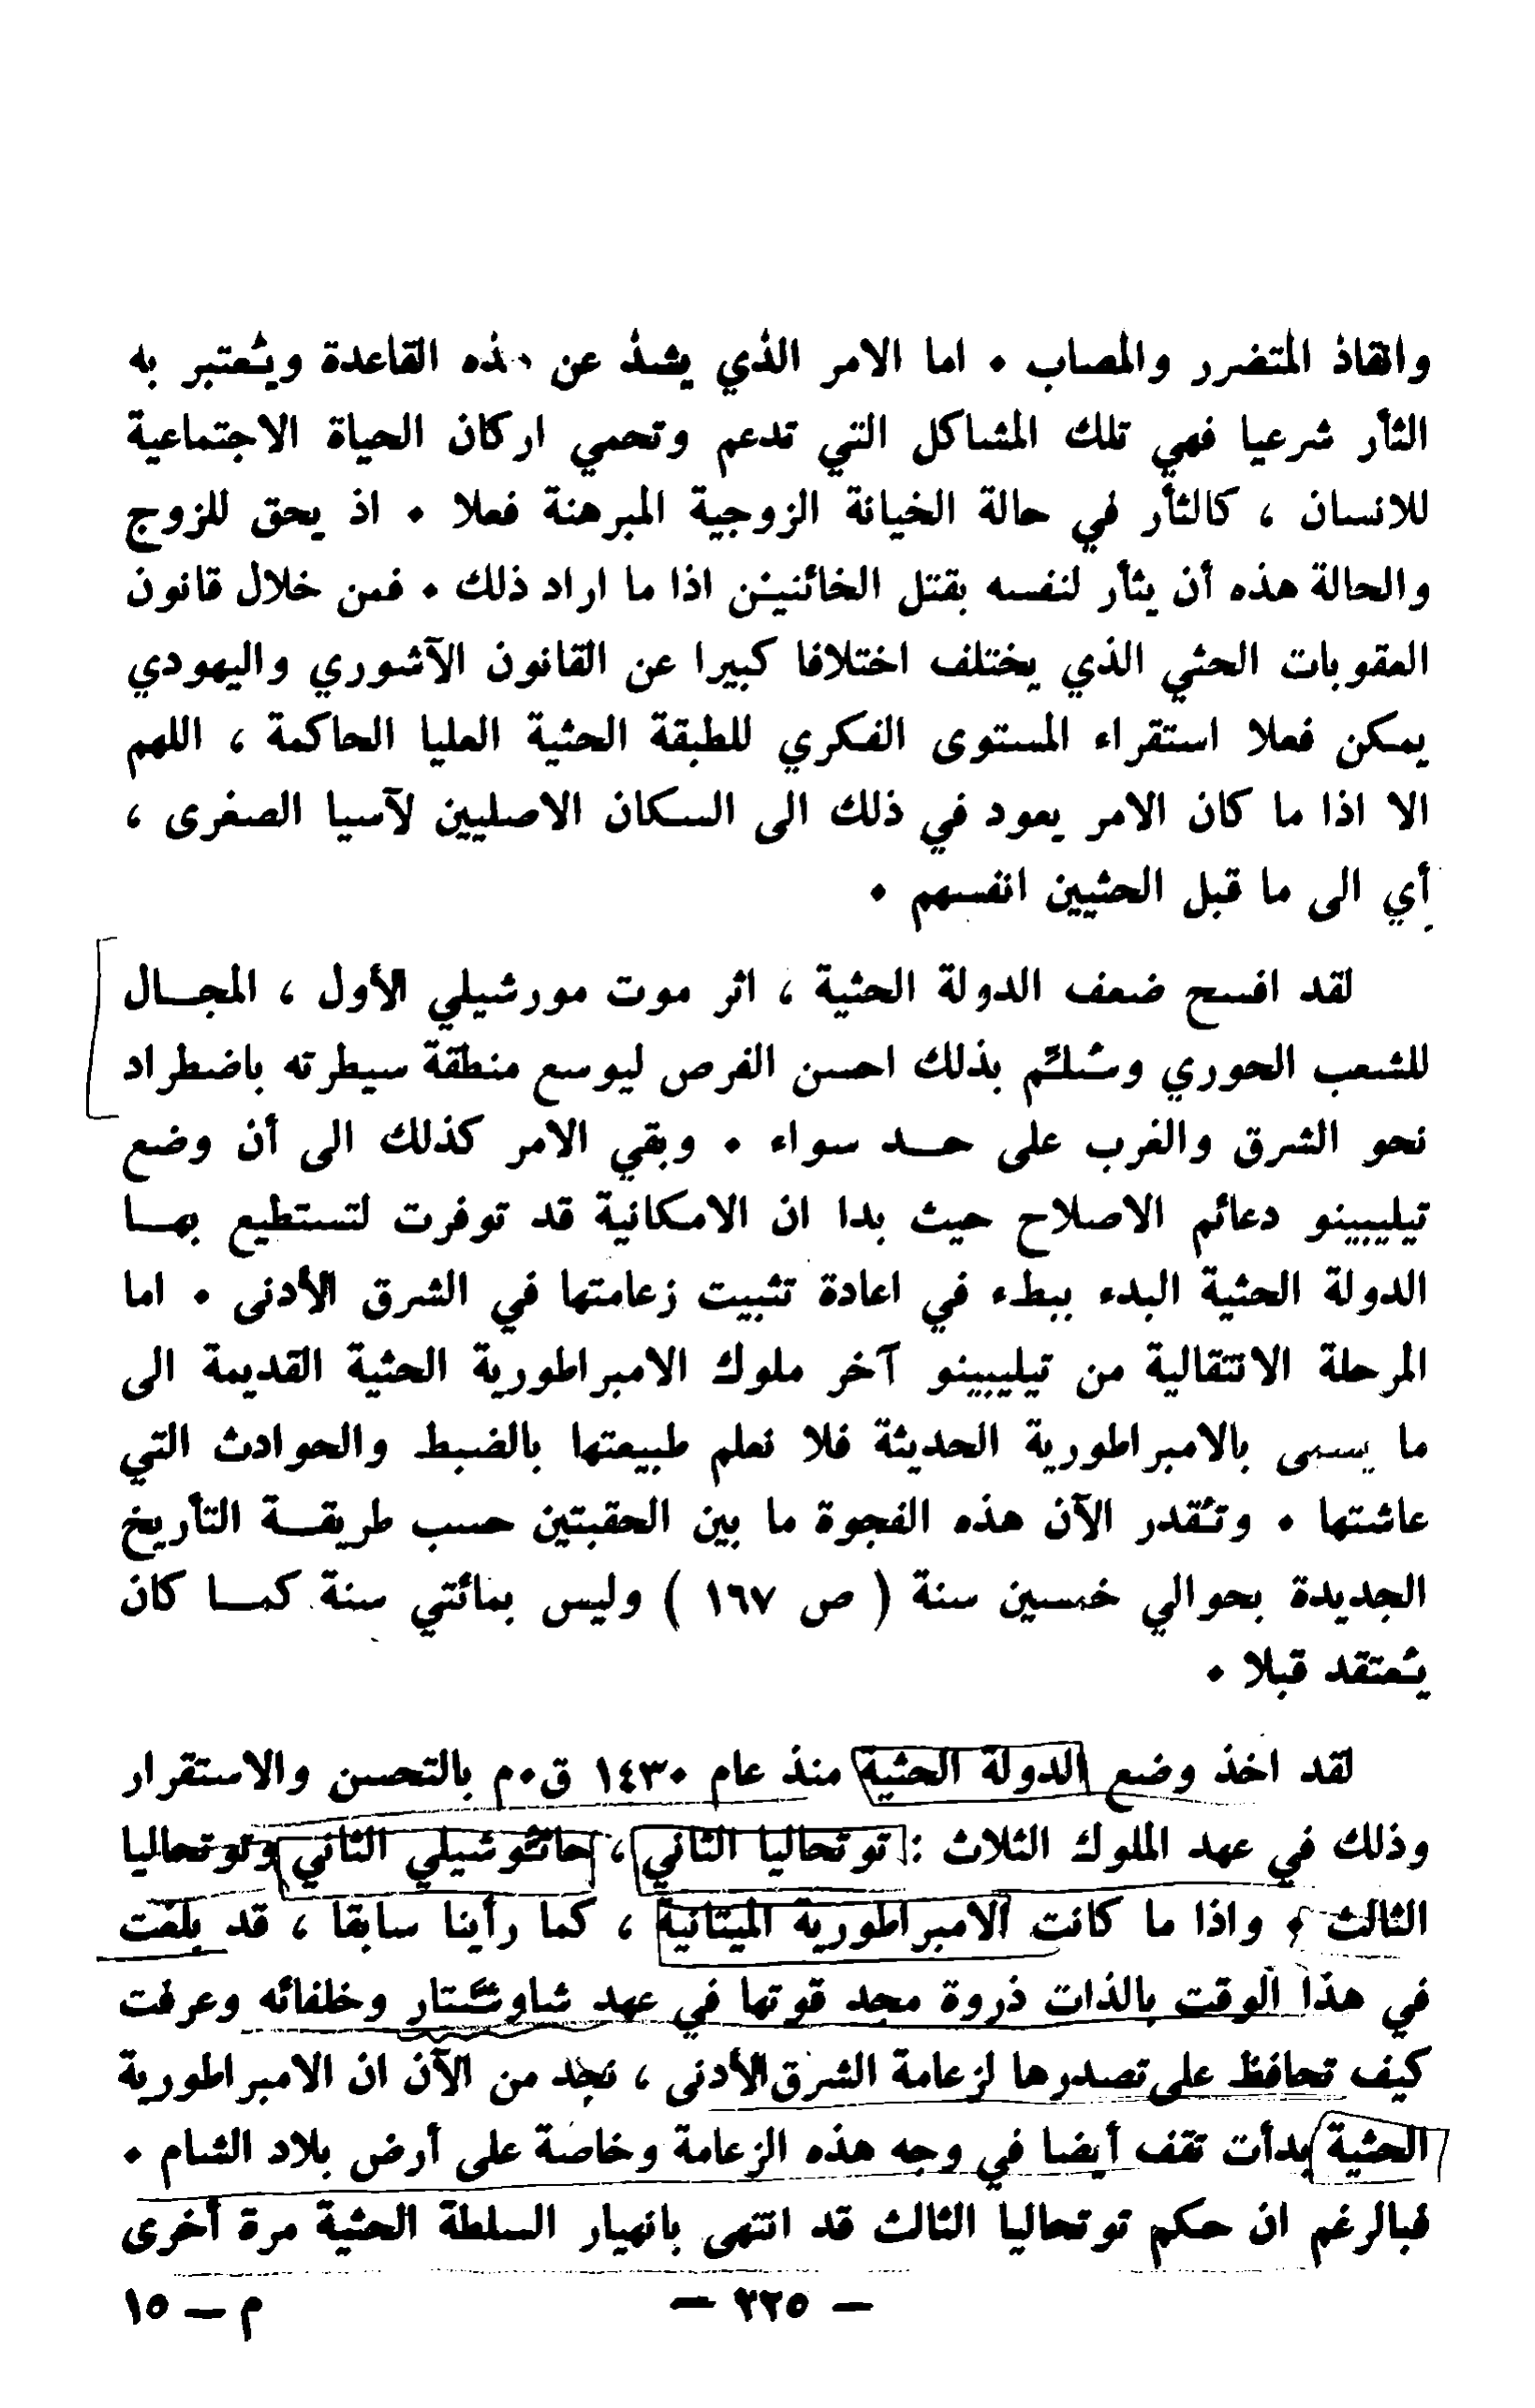 وانقاذ المتضرر والمصاب ٠ اما الامر الذي يشذ عن هذه القاعدة ويُعتبر به
الثأر شرعيا فهي تلك المشاكل التي تدعم وتحمي اركان الحياة الاجتماعية
للانسان ، كالثأر في حالة الخيانة الزوجية المبرهنة فعلا ٠ اذ يحق للزوج
والحالة هذه أن يثأر لنفسه بقتل الخائنيْن اذا ما اراد ذلك ٠ فمن خلال قانون
العقوبات الحثي الذي يختلف اختلافا كبيرا عن القانون الآشوري واليهودي
يمكن فعلا استقراء المستوى الفكري للطبقة الحثية العليا الحاكمة ، اللهم
الا اذا ما كان الامر يعود في ذلك الى السكان الاصليين لآسيا الصغرى ،
أي الى ما قبل الحثيين انفسهم ٠
لقد افسح ضعف الدولة الحثية ، اثر موت مورشيلي الأول ، المجـــال
للشعب الحوري وسُلّم بذلك احسن الفرص ليوسع منطقة سيطرته باضطراد
نحو الشرق والغرب على حـــد سواء ٠ وبقي الامر كذلك الى أن وضع
تيليبينو دعائم الاصلاح حيث بدا ان الامكانية قد توفرت لتستطيع بهـــا
الدولة الحثية البدء ببطء في اعادة تثبيت زعامتها في الشرق الأدنى ٠ اما
المرحلة الانتقالية من تيليبينو آخر ملوك الامبراطورية الحثية القديمة الى
ما يسمى بالامبراطورية الحديثة فلا نعلم طبيعتها بالضبط والحوادث التي
عاشتها ٠ وتُقدر الآن هذه الفجوة ما بين الحقبتين حسب طريقـــة التأريخ
الجديدة بحوالي خمسين سنة ( ص ١٦٧ ) وليس بمائتي سنة كمـــا كان
يُعتقد قبلا ٠
لقد اخذ وضع الدولة الحثية منذ عام ١٤٣٠ ق٠م بالتحسن والاستقرار
وذلك في عهد الملوك الثلاث : توتحاليا الثاني ، حاتّوشيلي الثاني وتوتحاليا
الثالث ٠ واذا ما كانت الامبراطورية الميتانية ، كما رأينا سابقا ، قد بلغت
في هذا الوقت بالذات ذروة مجد قوتها في عهد شاوشَتّتار وخلفائه وعرفت
كيف تحافظ على تصدرها لزعامة الشرق الأدنى ، نجد من الآن ان الامبراطورية
الحثية بدأت تقف أيضا في وجه هذه الزعامة وخاصة على أرض بلاد الشام ٠
فبالرغم ان حكم توتحاليا الثالث قد انتهى بانهيار السلطة الحثية مرة أخرى
— ٢٢٥ —
م — ١٥